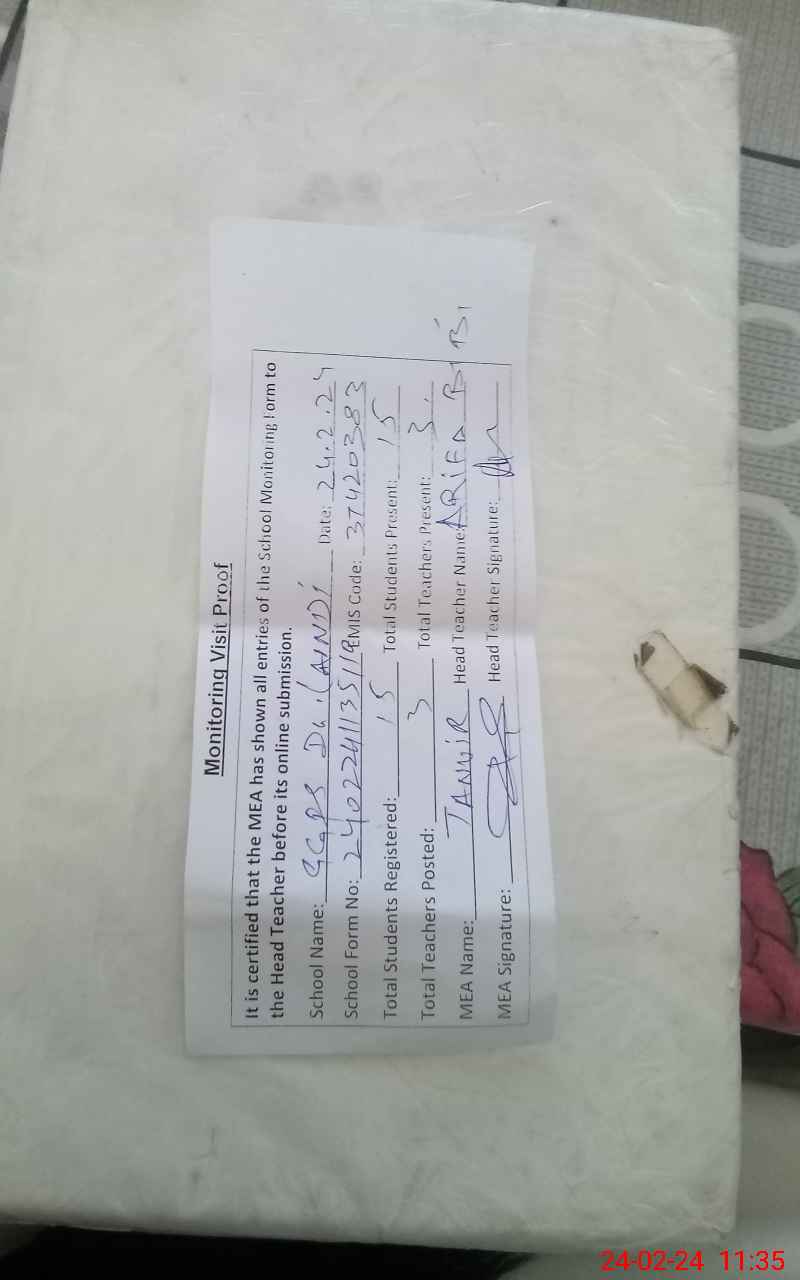 Monitoring Visit Proof
It is certified that the MEA has shown all entries of the School Monitoring Form to
the Head Teacher before its online submission.
School Name: GGPS Date: 24.2.24
School Form No: 2402241135119 EMIS Code: 37420383
Total Students Registered: 15 Total Students Present: 15
Total Teachers Posted: 3 Total Teachers Present: 3.
MEA Name: TANVIR Head Teacher Name: ARIFA BI BI
MEA Signature: Head Teacher Signature:
24-02-24 11:35